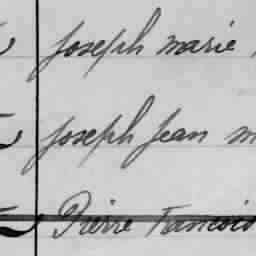 Joseph Marie
Joseph Jean M
Pierre Francois